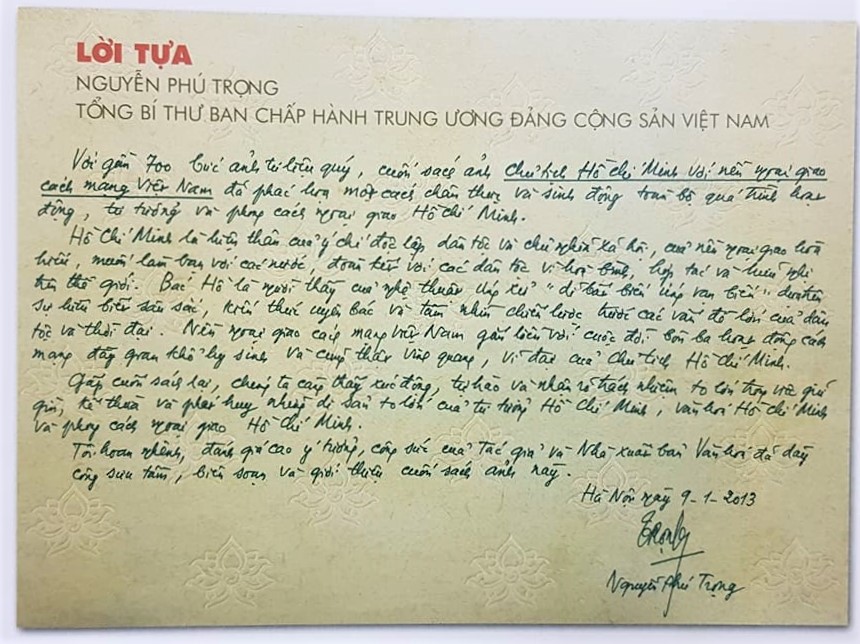 LỜI TỰA
NGUYỄN PHÚ TRỌNG
TỔNG BÍ THƯ BAN CHẤP HÀNH TRUNG ƯƠNG ĐẢNG CỘNG SẢN VIỆT NAM
Với gần 700 bức ảnh tư liệu quý, cuốn sách ảnh Chủ tịch Hồ Chí Minh với nền ngoại giao
cách mạng Việt Nam đã phác họa một cách chân thực và sinh động toàn bộ quá trình hoạt
động, tư tưởng và phong cách ngoại giao Hồ Chí Minh.
Hồ Chí Minh là hiện thân của ý chí độc lập dân tộc và chủ nghĩa xã hội, của nền ngoại giao hòa
hiếu, muốn làm bạn với các nước, đoàn kết với các dân tộc vì hòa bình, hợp tác và hữu nghị
trên thế giới. Bác Hồ là người thầy của nghệ thuật ứng xử "dĩ bất biến ứng vạn biến" dựa trên
sự hiểu biết sâu sắc, kiến thức uyên bác và tầm nhìn chiến lược trước các vấn đề lớn của dân
tộc và thời đại. Nền ngoại giao cách mạng Việt Nam gắn liền với cuộc đời bôn ba hoạt động cách
mạng đầy gian khổ hy sinh và cũng thật vinh quang, vĩ đại của Chủ tịch Hồ Chí Minh.
Gấp cuốn sách lại, chúng ta càng thấy xúc động, tự hào và nhận rõ trách nhiệm to lớn trong việc giữ
gìn, kế thừa và phát huy những di sản to lớn của tư tưởng Hồ Chí Minh, văn hóa Hồ Chí Minh
và phong cách ngoại giao Hồ Chí Minh.
Tôi hoan nghênh, đánh giá cao ý tưởng, công sức của Tác giả và Nhà xuất bản Văn hóa đã dày
công sưu tầm, biên soạn và giới thiệu cuốn sách ảnh này.
Hà Nội, ngày 9-1-2013
Trọng
Nguyễn Phú Trọng